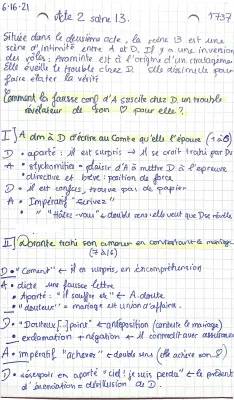 6-16-21
Acte 2 scène 13.
1737
Située dans le deuxième acte, la scène 13 est une
scène d'intimité entre A et D. Il y a une inversion
des rôles: Araminte est à l'origine d'un stratagème
Elle éveille le trouble chez D. Elle dissimule pour
faire éclater la vérité
Comment la fausse conf d'A suscite chez D. un trouble
révélateur de son ♡ pour elle?
I] A dm à D d'écrire au Comte qu'elle l'épouse (1 à 6)
D • aparté: il est surpris → il se croit trahi par Du
A • stychomities = plaisir d'A à mettre D à l'épreuve
• directive et brève: position de force
D • il est confus, trouve pas de papier
A • Impératif "écrivez"
• " "Hâtez-vous" ↓ double sens: elle veut que D se révèle
II] Dorante trahi son amour en contestant le mariage
(7 à 16)
D • "Comment" ← il est surpris, en incompréhension
A • dicte une fausse lettre
• Aparté: "il souffre" ← A doute
• "douteux" = mariage est union d'affaires.
D • "Douteux [..] point" ← antéposition (conteste le mariage)
• exclamation + négation ← il contredit avec assurance
A • impératif "achevez" ← double sens (elle achève son ♡)
D • désespoir en aparté "ciel! je suis perdu" ← le présent
d'énonciation = désillusion de D.